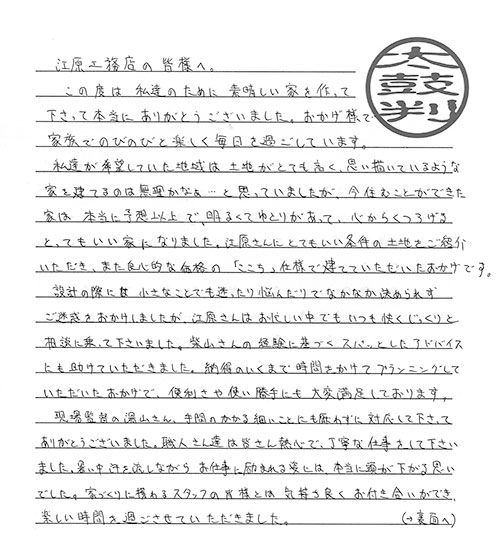 江原工務店の皆様へ。
太鼓判
この度は私達のために素晴しい家を作って
下さって本当にありがとうございました。おかげ様で
家族でのびのびと楽しく毎日を過ごしています。
私達が希望していた地域は土地がとても高く、思い描いているような
家を建てるのは無理かなぁ…と思っていましたが、今住むことができた
家は本当に予想以上で、明るくてゆとりがあって、心からくつろげる
とってもいい家になりました。江原さんにとてもいい条件の土地をご紹介
いただき、また良心的な価格の「ここち」仕様で建てていただいたおかげです。
設計の際には小さなことでも迷ったり悩んだりでなかなか決められず
ご迷惑をおかけしましたが、江原さんはお忙しい中でもいつも快くじっくりと
相談に乗って下さいました。柴山さんの経験に基づくスパッとしたアドバイス
にも助けていただきました。納得のいくまで時間をかけてプランニングして
いただいたおかげで、便利さや使い勝手にも大変満足しております。
現場監督の湯山さん、手間のかかる細いことにも厭わずに対応して下さって
ありがとうございました。職人さん達は皆さん熱心で、丁寧な仕事をして下さい
ました。暑い中汗を流しながらお仕事に励まれる姿には、本当に頭が下がる思い
でした。家づくりに携わるスタッフの皆様とは気持ち良くお付き合いができ、
楽しい時間を過ごさせていただきました。 (→裏面へ)